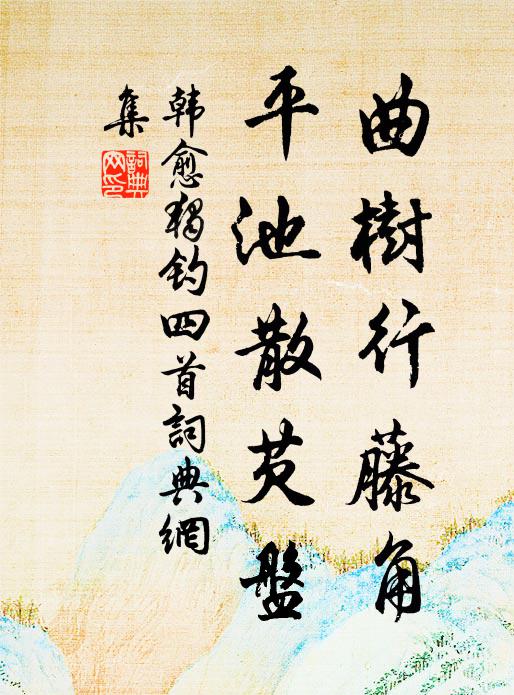 曲樹行藤角
平池散芡盤
韩愈独钓四首詞典網
集
詞典網印